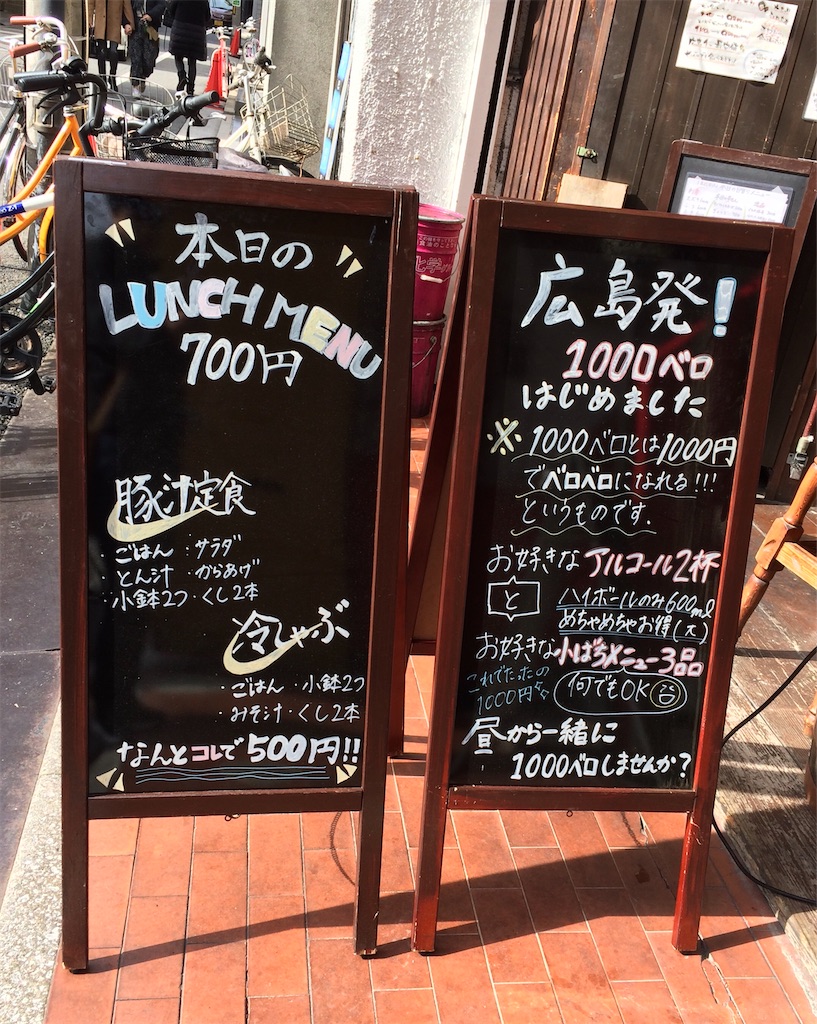 本日の
LUNCH MENU
700円
豚汁定食
・ごはん ・サラダ
・とん汁 ・からあげ
・小鉢2つ・くし2本
冷しゃぶ
・ごはん ・小鉢2つ
・みそ汁・くし2本
なんとコレで500円!!
広島発!
1000ベロ
はじめました
※1000ベロとは1000円
でベロベロになれる!!!
というものです.
お好きなアルコール2杯
と
ハイボールのみ600ml
めちゃめちゃお得(大)
お好きな小ばちメニュー3品
これでたったの
1000円
何でもOK
昼から一緒に
1000ベロしませんか?